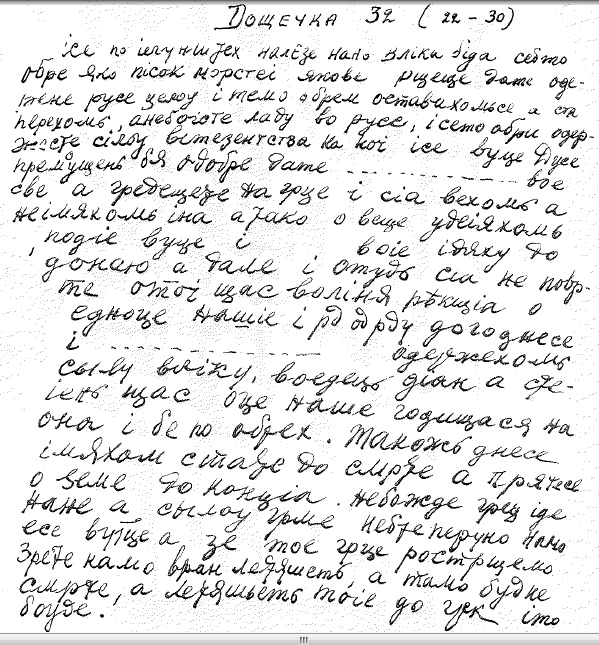 Дощечка 32 (22-30)
ісе по іегунштех налезе нано вліка біда себто
обре яко пісок морстеі якове рщеще дате оде-
жене русе целоу і темо обрем оставихомьсе а ста
перехомь, анебоісте ладу во русе, і сето обри одер-
жясте сілоу вітезентства на ноі ісе вуце Дусе
премущень бя одобре дате вое
све а гредещезе на грце і сіа вехомь а
неімяхомь іна а тако о веще удеіяхомь
подіе вуце і воіе ідяху до
донаю а дале і отудь сіа не повр-
те отоі щас воліня рѣкщіа о
едноце нашіе і рд одрду догоднесе
і одержехомь
сылу вліку, воедець діан а сте-
іень щас оце наше годищася на
она і бе по обрех. Такожь днесе
імяхом ставе до смрте а пряжсе
о земе до конціа. Небожде грец іде
нане а сылоу грме небте перуно нано
есе вутце а зе тое грце рострщемо
Зрете камо вран летяшеть, а тамо будне
смрте, а летяшьеть тоіе до грек іто
боуде.